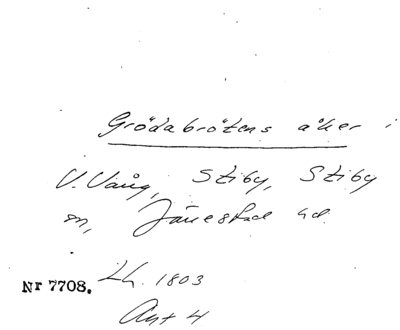 Grödabrötens åker i
V. Vång, Stiby, Stiby
sn, Järrestad hd.
Lh. 1803
Nr 7708.
Akt 4